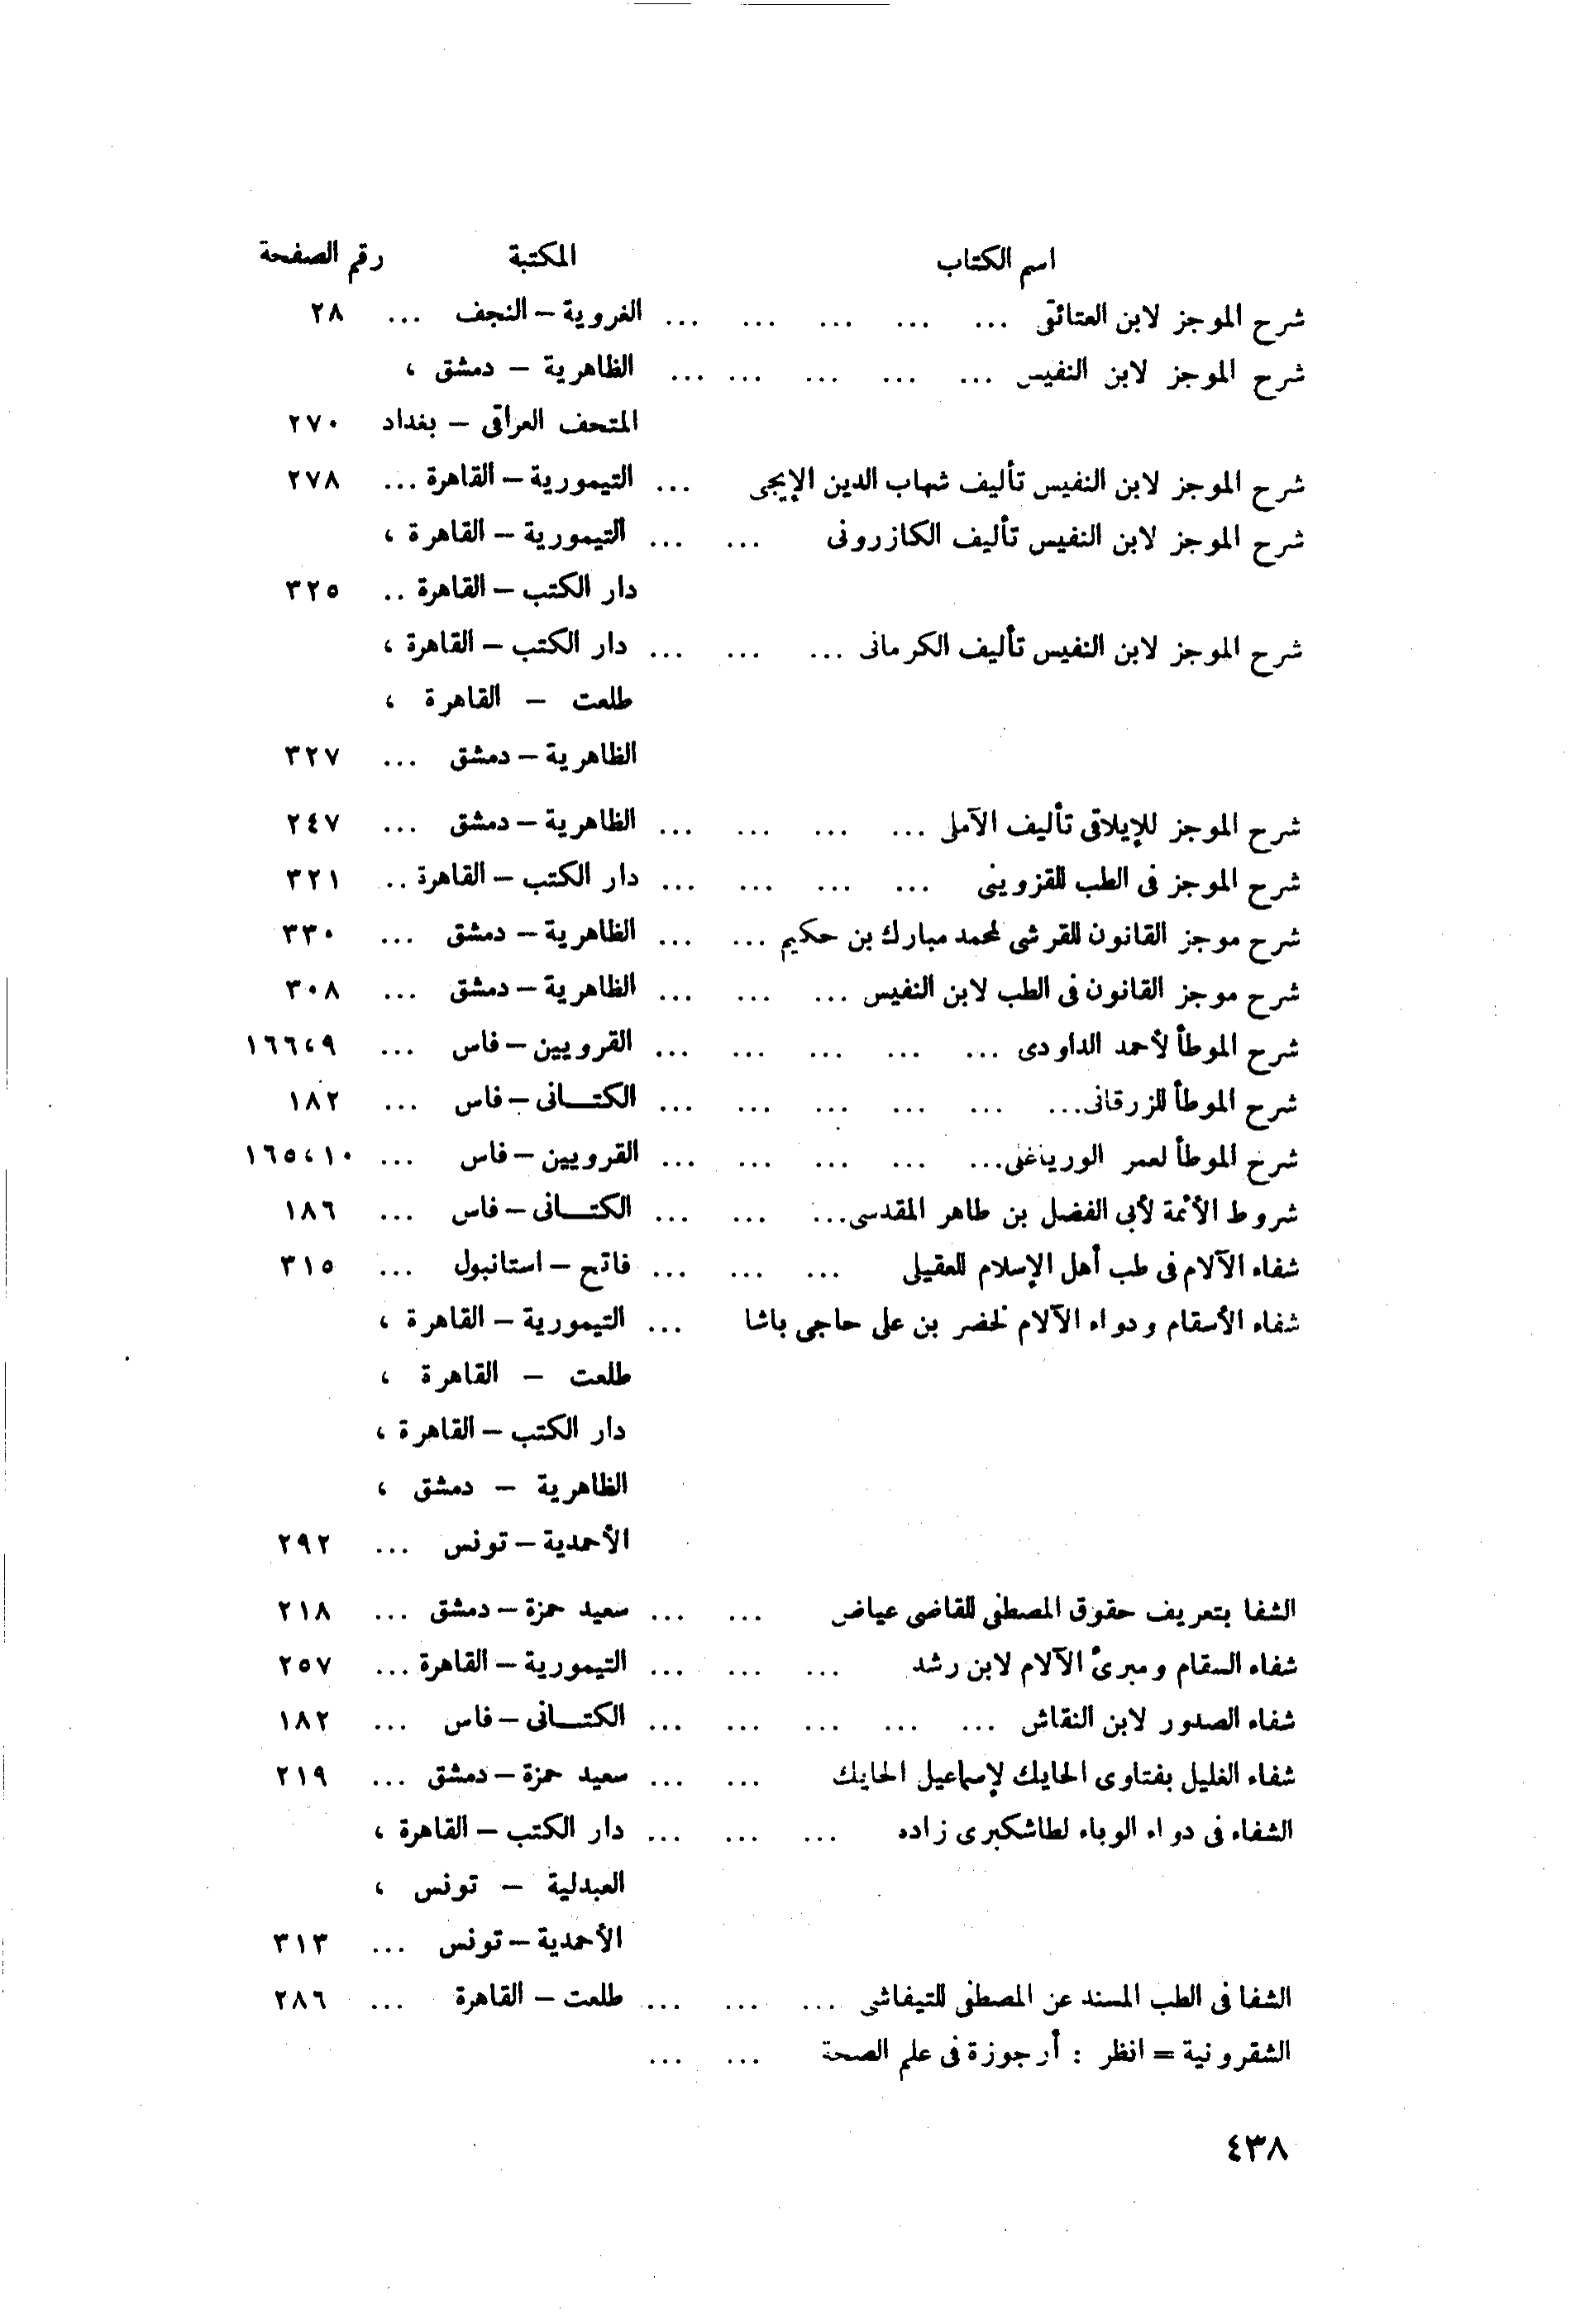 اسم الكتاب المكتبة رقم الصفحة
شرح الموجز لابن العتائقى ... ... ... ... ... الغروية – النجف ... ٢٨
شرح الموجز لابن النفيس ... ... ... ... ... الظاهرية – دمشق ،
المتحف العراقى – بغداد ٢٧٠
شرح الموجز لابن النفيس تأليف شهاب الدين الإيجى ... التيمورية – القاهرة ... ٢٧٨
شرح الموجز لابن النفيس تأليف الكازرونى ... ... التيمورية – القاهرة ،
دار الكتب – القاهرة .. ٣٢٥
شرح الموجز لابن النفيس تأليف الكرمانى ... ... ... دار الكتب – القاهرة ،
طلعت – القاهرة ،
الظاهرية – دمشق ... ٣٢٧
شرح الموجز للإيلاقى تأليف الآملى ... ... ... ... الظاهرية – دمشق ... ٢٤٧
شرح الموجز فى الطب للقزوينى ... ... ... ... دار الكتب – القاهرة .. ٣٢١
شرح موجز القانون للقرشى لمحمد مبارك بن حكيم ... ... الظاهرية – دمشق ... ٣٣٠
شرح موجز القانون فى الطب لابن النفيس ... ... ... الظاهرية – دمشق ... ٣٠٨
شرح الموطأ لأحمد الداودى ... ... ... ... ... القرويين – فاس ... ٩ ، ١٦٦
شرح الموطأ للزرقانى ... ... ... ... ... ... الكتـــانى – فاس ... ١٨٢
شرح الموطأ لعمر الورياغلى ... ... ... ... ... القرويين – فاس ... ١٠ ، ١٦٥
شروط الأئمة لأبى الفضل بن طاهر المقدسى ... ... ... الكتـــانى – فاس ... ١٨٦
شفاء الآلام فى طب أهل الإسلام للعقيلى ... ... ... فاتح – استانبول ... ٣١٥
شفاء الأسقام ودواء الآلام لخضر بن على حاجى باشا ... التيمورية – القاهرة ،
طلعت – القاهرة ،
دار الكتب – القاهرة ،
الظاهرية – دمشق ،
الأحمدية – تونس ... ٢٩٢
الشفا بتعريف حقوق المصطفى للقاضى عياض ... ... سعيد حمزة – دمشق ... ٢١٨
شفاء السقام ومبرئ الآلام لابن رشد ... ... ... التيمورية – القاهرة ... ٢٥٧
شفاء الصدور لابن النقاش ... ... ... ... ... الكتـــانى – فاس ... ١٨٢
شفاء الغليل بفتاوى الحايك لإسماعيل الحايك ... ... سعيد حمزة – دمشق ... ٢١٩
الشفاء فى دواء الوباء لطاشكبرى زاده ... ... ... دار الكتب – القاهرة ،
العبدلية – تونس ،
الأحمدية – تونس ... ٣١٣
الشفا فى الطب المسند عن المصطفى للتيفاشى ... ... ... طلعت – القاهرة ... ٢٨٦
الشقرونية = انظر : أرجوزة فى علم الصحة ... ...
٤٣٨